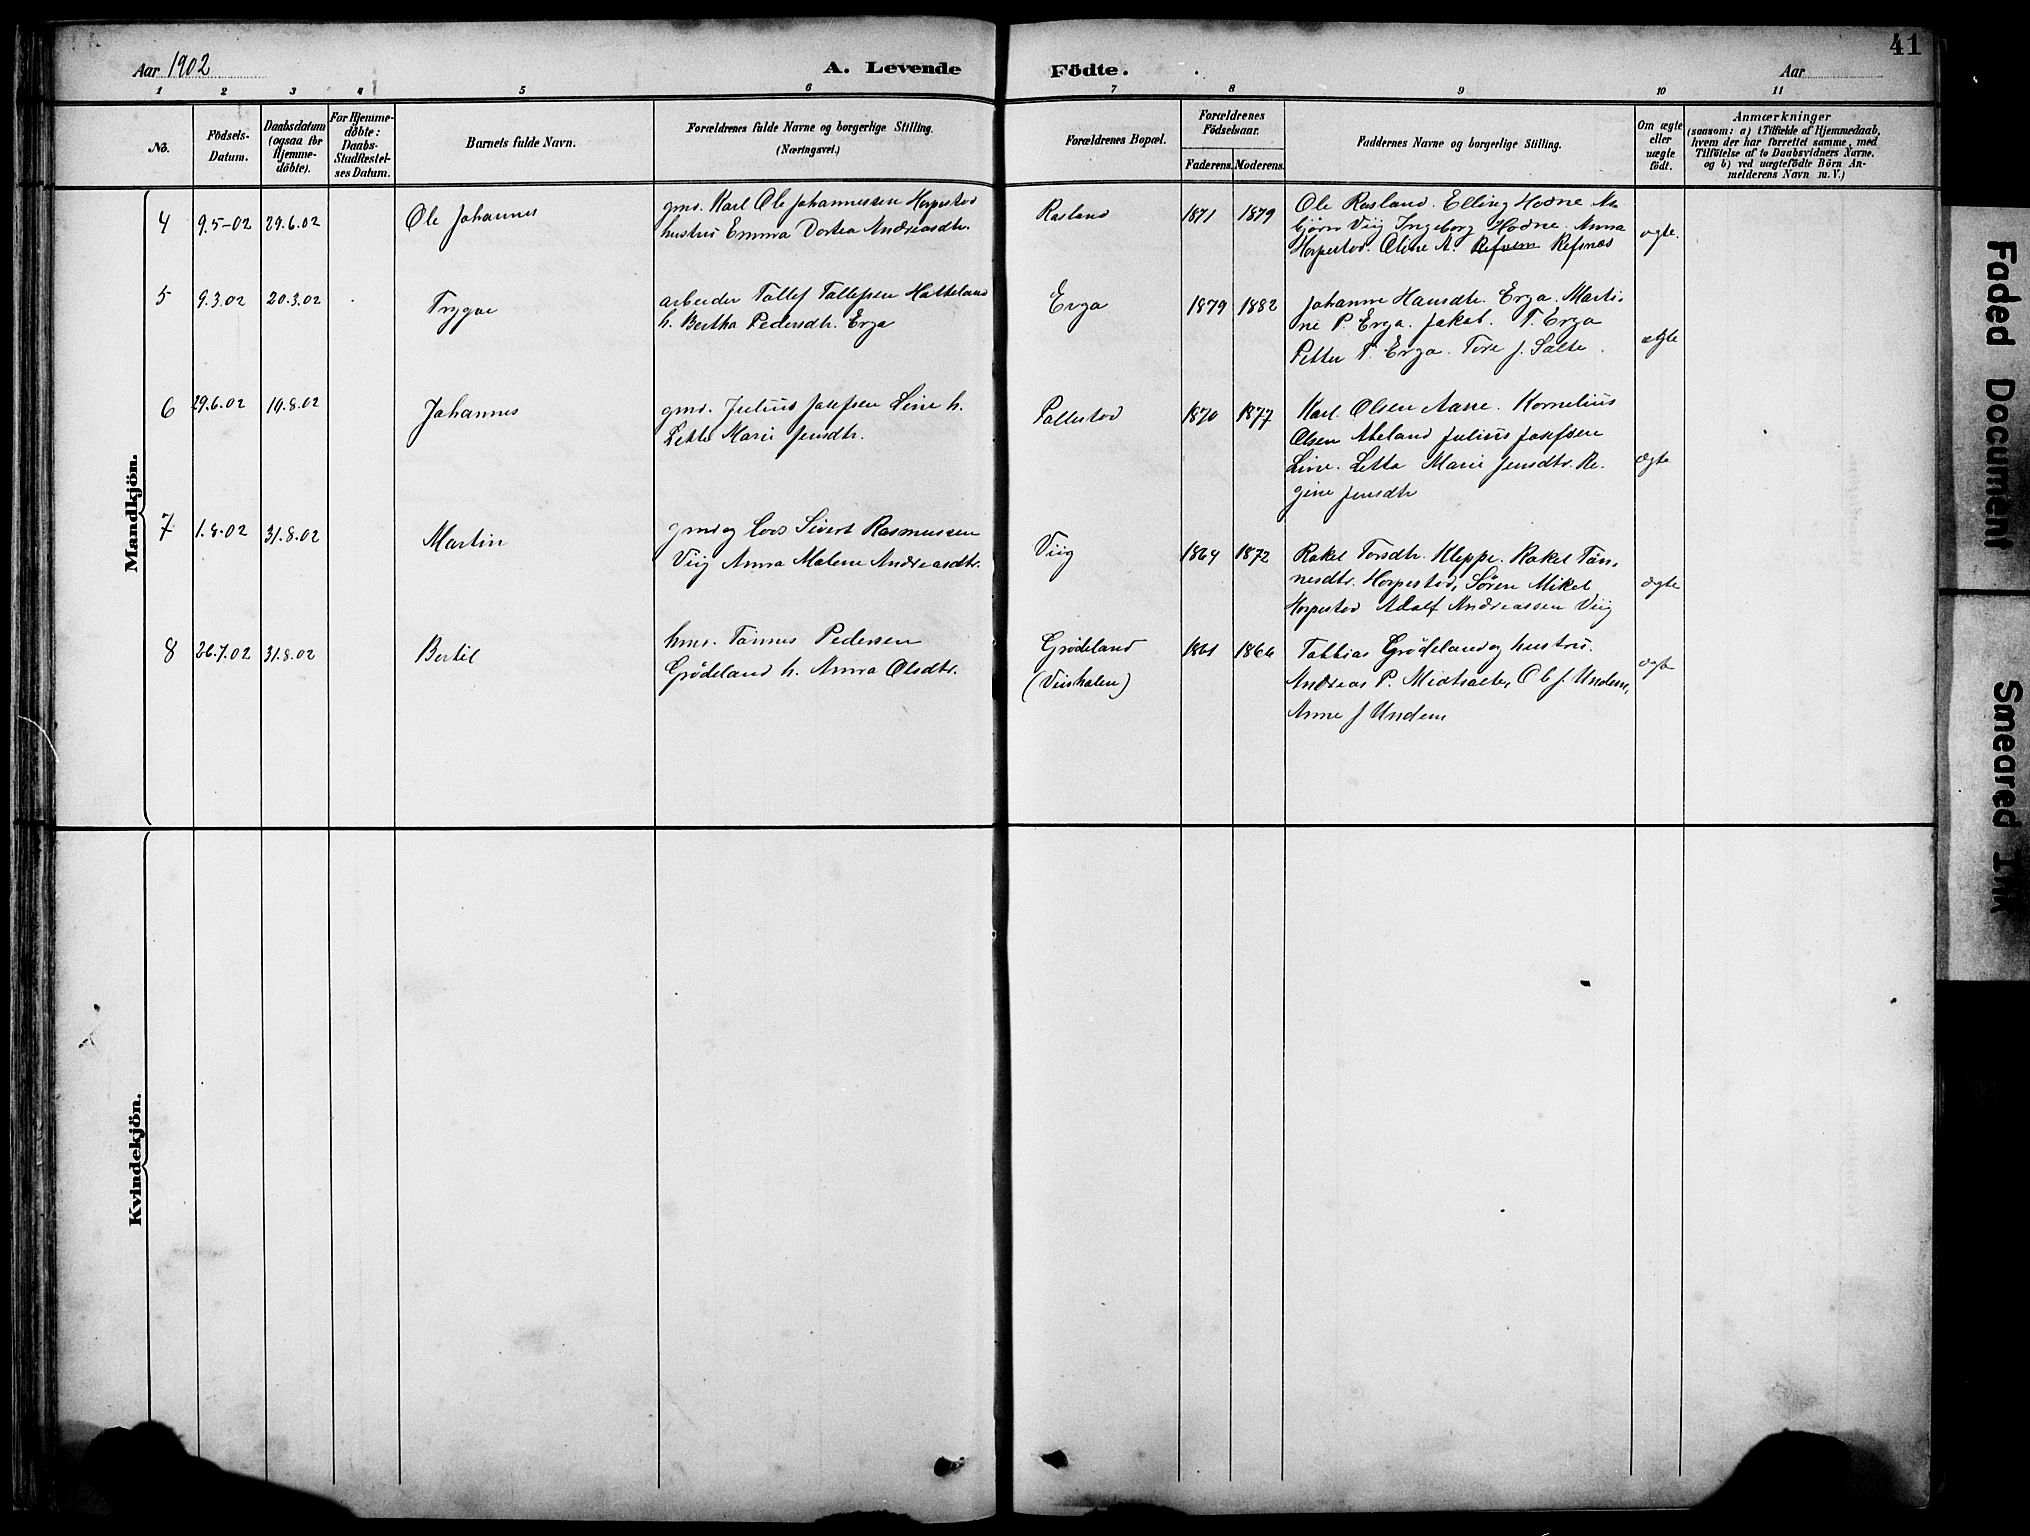 Aar 1902
A. Levende
Födte.
Aar
41
1 2 3 4 5 6 7 8 9 10 11
No.
Födsels-
Datum.
Daabsdatum
(ogsaa for
Hjemme-
döbte).
For Hjemme-
döbte:
Daabs-
Stadfæstel-
ses Datum.
Barnets fulde Navn.
Forældrenes fulde Navne og borgerlige Stilling.
(Næringsvei.)
Forældrenes Bopæl.
Forældrenes
Födselsaar.
Faderens. Moderens.
Faddernes Navne og borgerlige Stilling.
Om ægte
eller
uægte
födt.
Anmærkninger
(saasom: a) i Tilfælde af Hjemmedaab,
hvem der har forrettet samme, med
Tilföielse af to Daabsvidners Navne.
og b) ved uægtefödte Börn An-
melderens Navn m. V.)
Mandkjön.
4 9.5-02 29.6.02 Ole Johannes
gmd. Karl Ole Johannessen Horpestad
hustru Emma Dortea Andreasdtr.
Rosland 1871 1879
Ole Rosland. Elling Hodne As
björn Viig Ingeborg Hodne. Anna
Horpestad. Oline A. Refsnes
ægte.
5 9.3.02 20.3.02 Trygve
arbeider Tollef Tollefsen Hatteland
h. Bertha Pedersdtr. Erga
Erga 1879 1882
Johanne Hansdtr. Erga. Marti-
ne P. Erga. Jakob. T. Erga
Petter T. Erga. Tore J. Salte.
ægte
6 29.6.02 10.8.02 Johannes
gmd. Julius Josefsen Line h.
Marie Jensdtr.
Pollestad 1870 1877
Karl Olsen Aase. Kornelius
Olsen Julius Josefsen
Line. Letta Marie Jensdtr. Re-
gine Jensdtr
ægte
7 1.8.02 31.8.02 Martin
gmd og Sivert Rasmussen
Viig Anna Malene Andreasdtr.
Viig 1864 1872
Rakel Torsdtr. Kleppe. Rakel Tön-
nesdtr. Horpestad, Sören Mikel
Horpestad Adolf Andreassen Viig
ægte
8 26.7.02 31.8.02 Bertil
hmd. Tönnes Pedersen
Grödeland h. Anna Olsdtr.
Grödeland 1861 1866
Tobbias Grödeland og hustru.
Andreas P. Midtsalte, Ole J. Undem,
Anne J Undem
ægte
Kvindekjön.
Faded Document
Smeared Ink